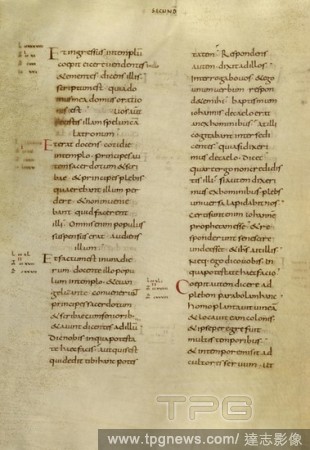 SECUND
Et ingressus in templū
coepit eicere vendentes
& ementes dicens illis
scriptum est quia do
mus mea domus oratio
nis est
fecistis illam speluncā
latronum
Et erat docens cotidie
in templo principes au
tem sacerdotum & scri
bae & principes plebis
quaerebant illum per
dere & non invenie
bant quid facerent
illi omnis enim populus
suspensus erat audiens
illum
Et factum est in una die
rum docente illo popu
lum in templo & evan
gelizante convenerunt
principes sacerdotum
& scribae cum seniorib:
& aiunt dicentes ad illū
dic nobis in qua potesta
te haec facis aut quis est
qui dedit tibi hanc potes
tatem Respondens
autem dixit ad illos
interrogabo vos & ego
unum verbum respon
dete mihi baptismum
iohannis de caelo erat
an ex hominibus at illi
cogitabant inter se di
centes quia si dixeri
mus de caelo dicet
quare ergo non credidis
tis illi si autem dixeri
mus ex hominibus plebs
universa lapidabit nos
certi sunt enim iohannē
prophetam esse & res
ponderunt se nescire
unde esset & ihs ait illis
neq: ego dico vobis in
qua potestate haec facio
Coepit autem dicere ad
plebem parabolam hanc
homo plantavit vineā
& locavit eam colonis
& ipse peregre fuit
multis temporibus
& in tempore misit ad
cultores servum ut
TPG
www.tpgnews.com/ 達志影像